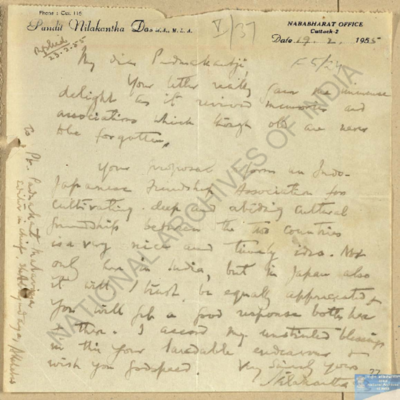 Phone : Cuc. 115
Pandit Nilakantha Das M.A., M.L.A.
V/37
NABABHARAT OFFICE
Cuttack-2
Date 19. 2. 1955
Replied
My dear Padmakantji
Your letter really gave me immense
delight as it revived memories and
associations which though old are never
to be forgotten.
Your proposal to form an Indo-
Japanese Friendship Association for
cultivating deep and abiding cultural
friendship between the two countries
is a very nice and timely idea. Not
only here in India, but in Japan also
it will I trust, be equally appreciated &
you will get a good response both here
& there. I accord my unstinted blessings
in this your laudable endeavour &
wish you godspeed.
Very Sincerely yours
Nilakantha
To Pt. Padmakant Malaviya
NATIONAL ARCHIVES OF INDIA